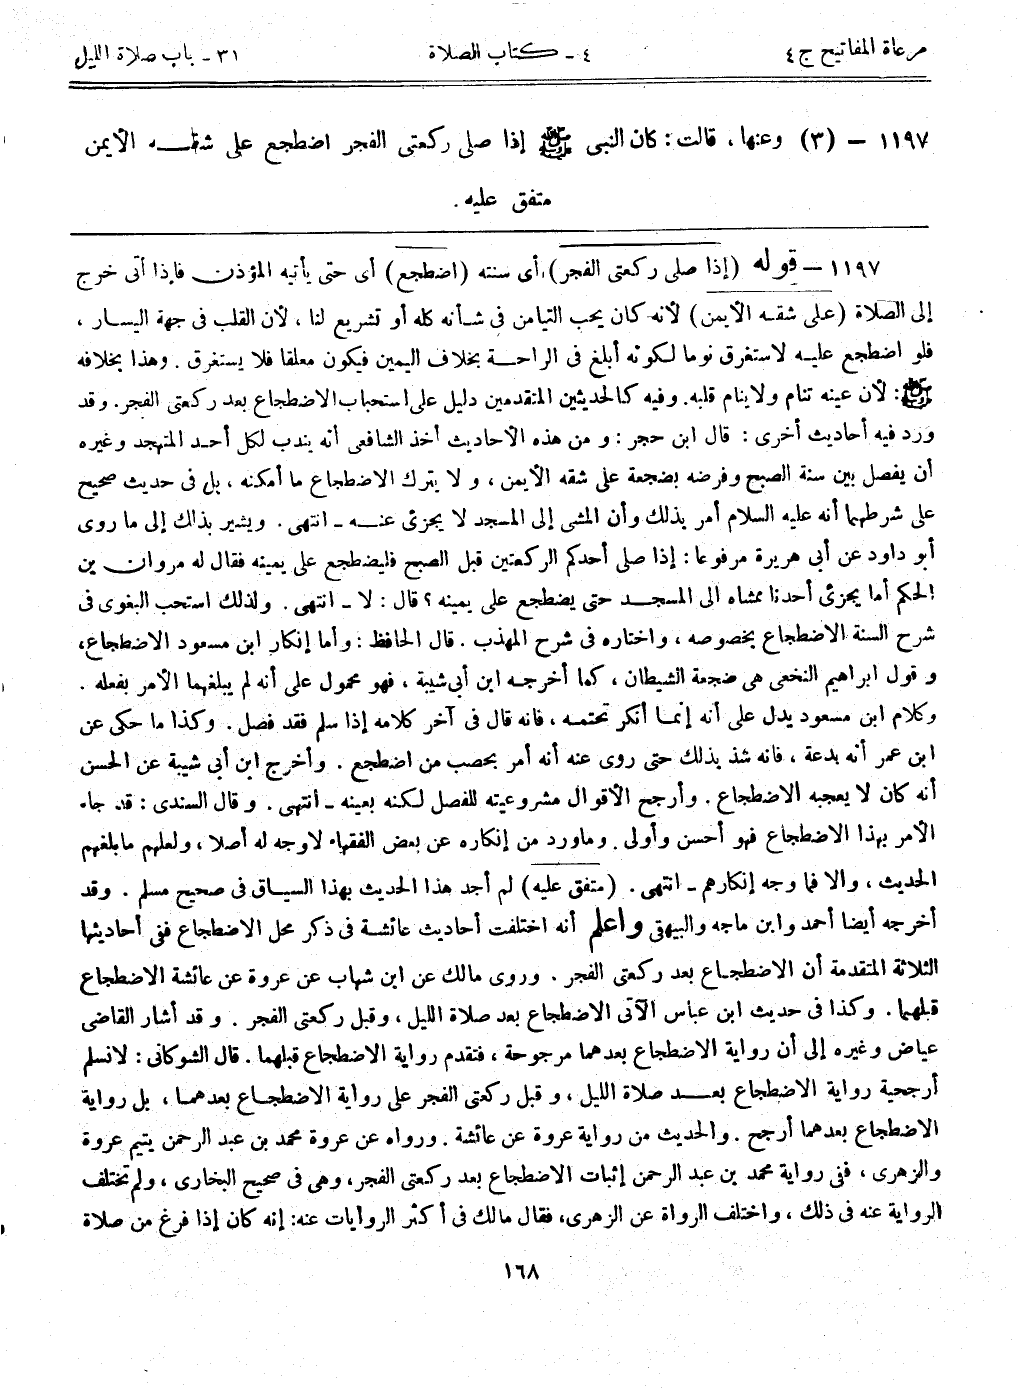 مرعاة المفاتيح ج ٤
٤ - كتاب الصلاة
٣١ - باب صلاة الليل
١١٩٧ - (٣) وعنها، قالت: كان النبى ﷺ إذا صلى ركعتى الفجر اضطجع على شقـــه الأيمن
متفق عليه.
١١٩٧ - قوله (إذا صلى ركعتى الفجر) أى سنته (اضطجع) أى حتى يأتيه المؤذن فإذا أتى خرج
إلى الصلاة (على شقه الأيمن) لأنه كان يحب التيامن فى شأنه كله أو تشريع لنا، لأن القلب فى جهة اليسار،
فلو اضطجع عليه لاستغرق نوما لكونه أبلغ فى الراحة بخلاف اليمين فيكون معلقا فلا يستغرق. وهذا بخلافه
ﷺ: لأن عينه تنام ولاينام قلبه. وفيه كالحديثين المتقدمين دليل على استحباب الاضطجاع بعد ركعتى الفجر. وقد
ورد فيه أحاديث أخرى: قال ابن حجر: و من هذه الأحاديث أخذ الشافعى أنه يندب لكل أحد المتهجد وغيره
أن يفصل بين سنة الصبح وفرضه بضجعة على شقه الأيمن، و لا يترك الاضطجاع ما أمكنه، بل فى حديث صحيح
على شرطهما أنه عليه السلام أمر بذلك وأن المشى إلى المسجد لا يجزئ عنه - انتهى. ويشير بذالك إلى ما روى
أبو داود عن أبى هريرة مرفوعا: إذا صلى أحدكم الركعتين قبل الصبح فليضطجع على يمينه فقال له مروان بن
الحكم أما يجزئ أحدنا ممشاه الى المسجد حتى يضطجع على يمينه؟ قال: لا - انتهى. ولذلك استحب البغوى فى
شرح السنة الاضطجاع بخصوصه، واختاره فى شرح المهذب. قال الحافظ: وأما إنكار ابن مسعود الاضطجاع،
و قول ابراهيم النخعى هى ضجعة الشيطان، كما أخرجه ابن أبى شيبة، فهو محمول على أنه لم يبلغهما الأمر بفعله.
وكلام ابن مسعود يدل على أنه إنما أنكر تحتمه، فانه قال فى آخر كلامه إذا سلم فقد فصل. وكذا ما حكى عن
ابن عمر أنه بدعة، فانه شذ بذلك حتى روى عنه أنه أمر بحصب من اضطجع. وأخرج ابن أبى شيبة عن الحسن
أنه كان لا يعجبه الاضطجاع. وأرجح الأقوال مشروعيته للفصل لكنه بعينه - انتهى. و قال السندى: قد جاء
الأمر بهذا الاضطجاع فهو أحسن وأولى. وماورد من إنكاره عن بعض الفقهاء لاوجه له أصلا، ولعلهم مابلغهم
الحديث، والا فما وجه إنكارهم - انتهى. (متفق عليه) لم أجد هذا الحديث بهذا السياق فى صحيح مسلم. وقد
أخرجه أيضا أحمد وابن ماجه والبيهقى واعلم أنه اختلفت أحاديث عائشة فى ذكر محل الاضطجاع ففى أحاديثها
الثلاثة المتقدمة أن الاضطجاع بعد ركعتى الفجر. وروى مالك عن ابن شهاب عن عروة عن عائشة الاضطجاع
قبلهما. وكذا فى حديث ابن عباس الآتى الاضطجاع بعد صلاة الليل، وقبل ركعتى الفجر. و قد أشار القاضى
عياض وغيره إلى أن رواية الاضطجاع بعدهما مرجوحة، فتقدم رواية الاضطجاع قبلهما. قال الشوكانى: لانسلم
أرجحية رواية الاضطجاع بعد صلاة الليل، و قبل ركعتى الفجر على رواية الاضطجاع بعدهما، بل رواية
الاضطجاع بعدهما أرجح. والحديث من رواية عروة عن عائشة. ورواه عن عروة محمد بن عبد الرحمن يتيم عروة
والزهرى، ففى رواية محمد بن عبد الرحمن إثبات الاضطجاع بعد ركعتى الفجر، وهى فى صحيح البخارى، ولم تختلف
الرواية عنه فى ذلك، واختلف الرواة عن الزهرى، فقال مالك فى أكثر الروايات عنه: إنه كان إذا فرغ من صلاة
١٦٨